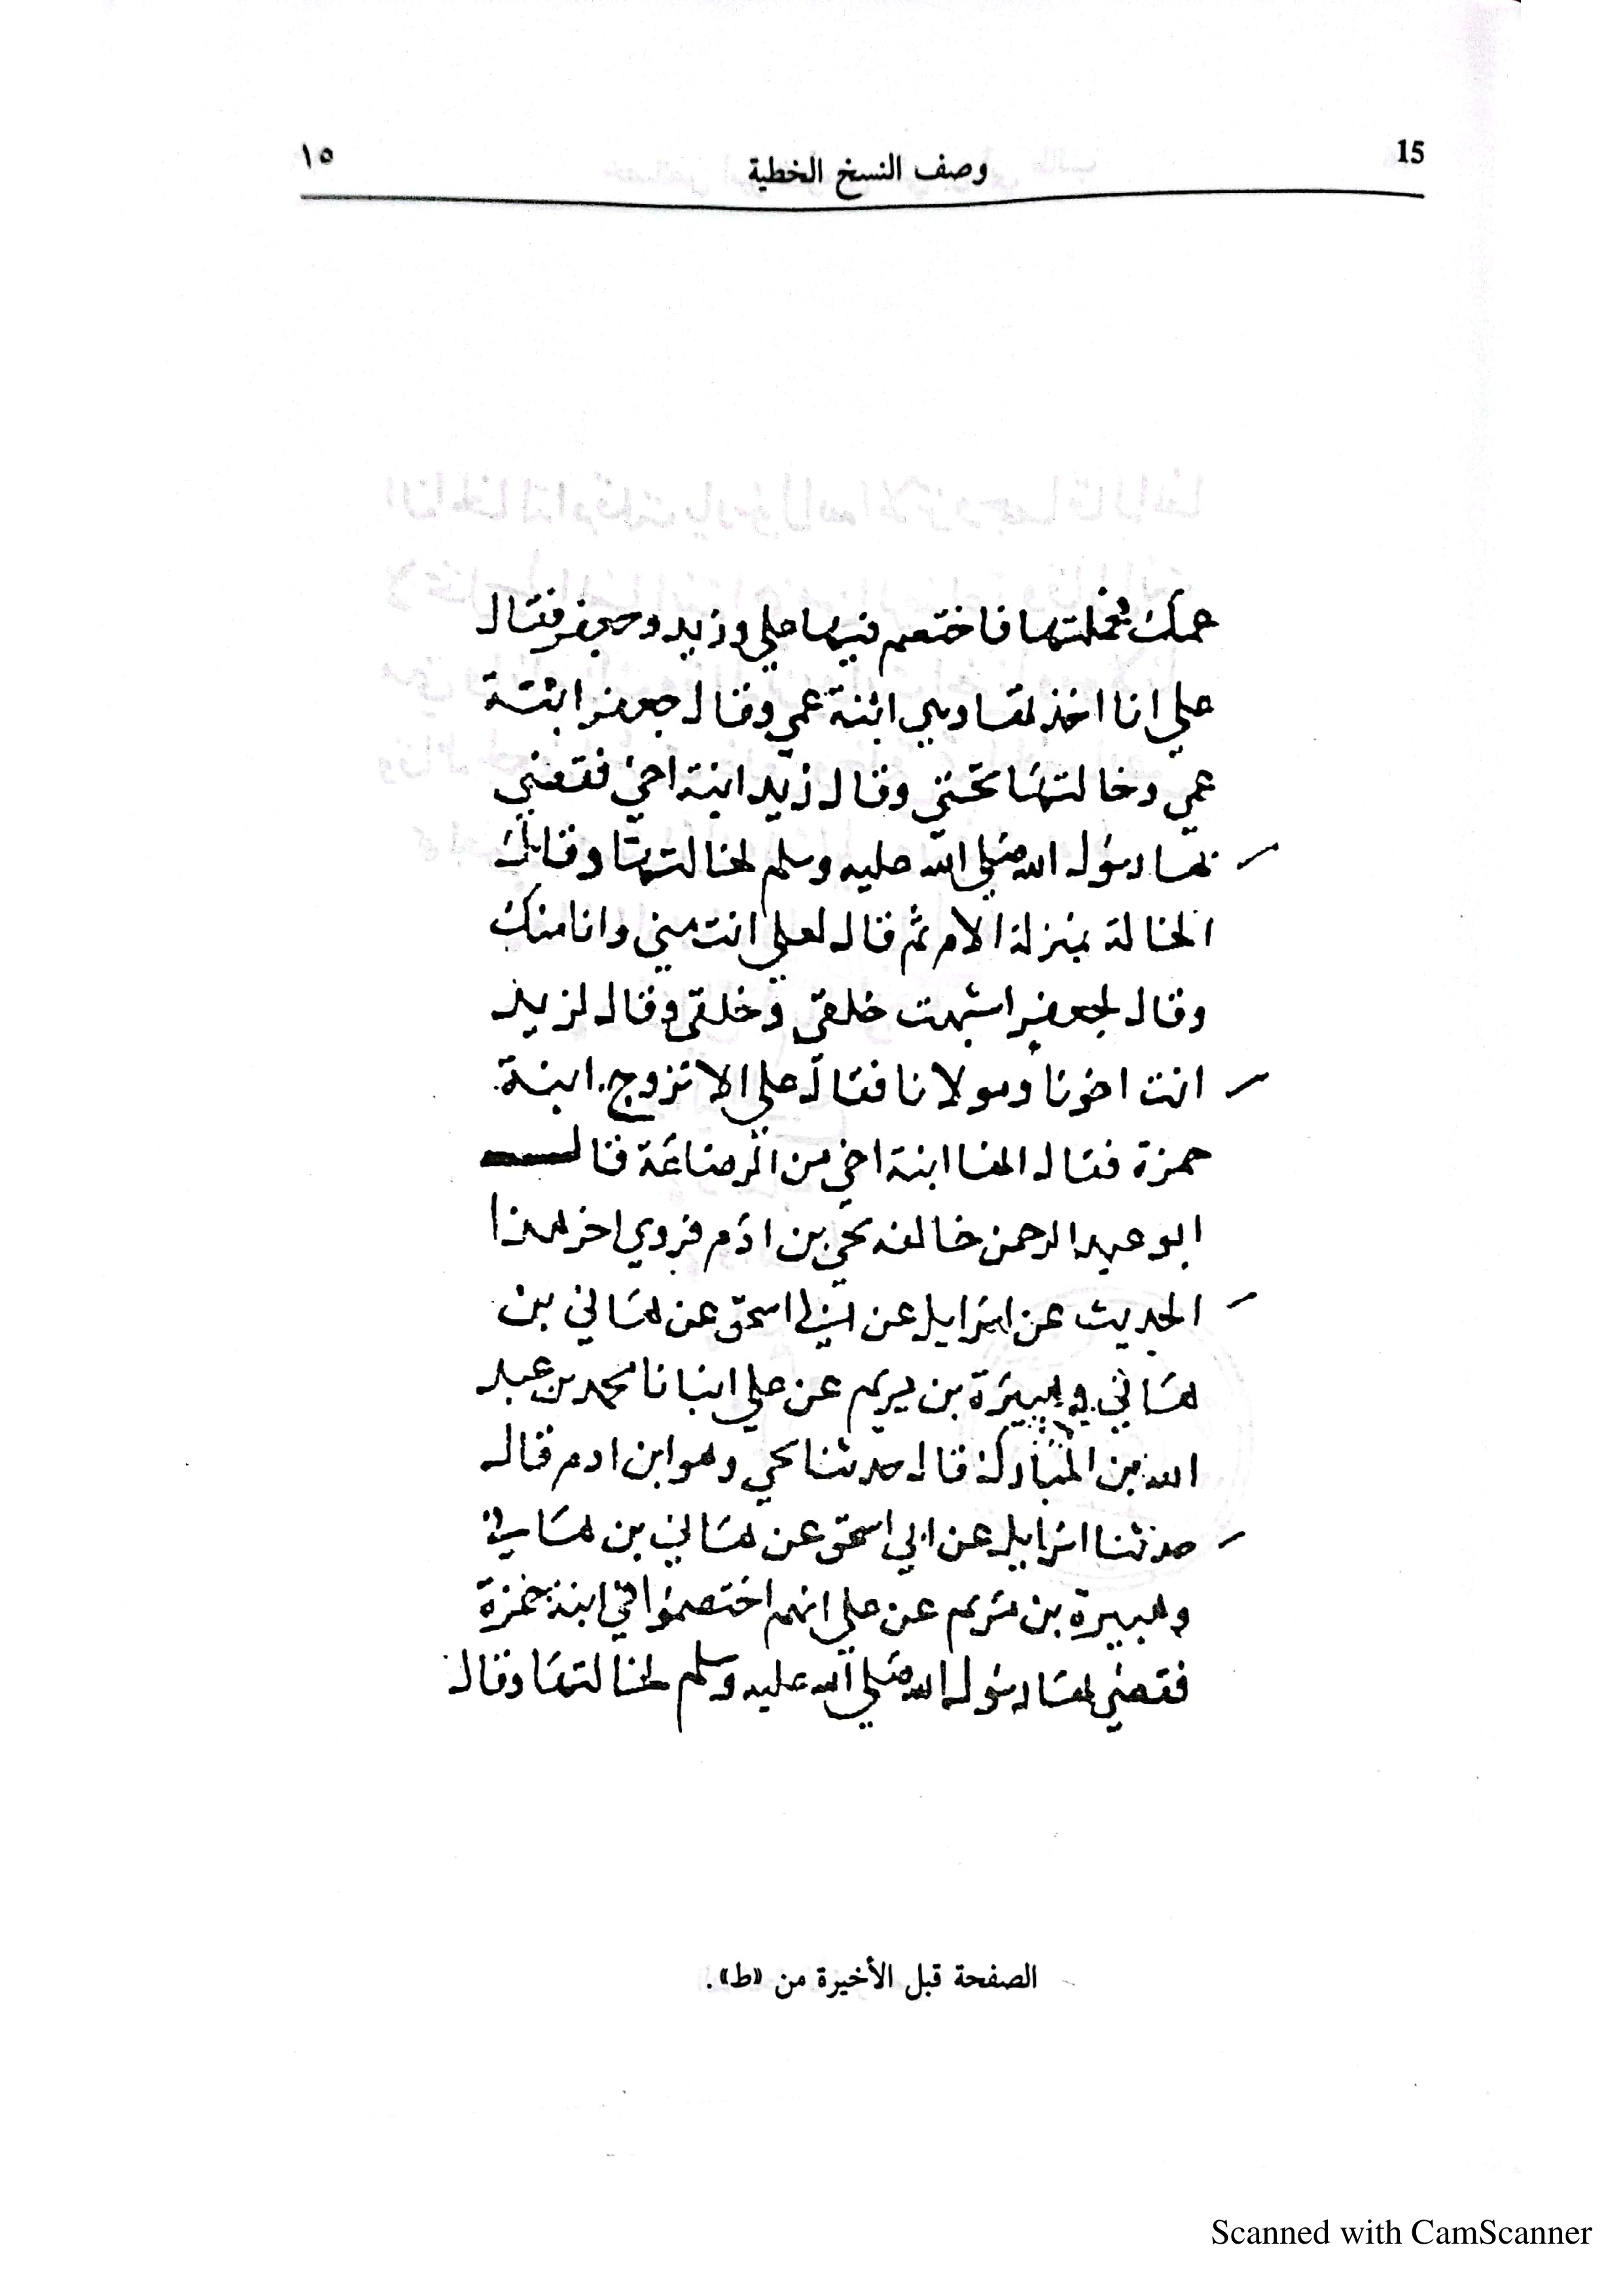 15
وصف النسخ الخطية
١٥
عمك فحملتها فاختصم فيها علي وزيد وجعفر فقال
علي انا اخذتها وهي ابنة عمي وقال جعفر ابنة
عمي وخالتها تحتي وقال زيد ابنة اخي فقضى
بها رسول الله صلى الله عليه وسلم لخالتها وقال
الخالة بمنزلة الام ثم قال لعلي انت مني وانا منك
وقال لجعفر اشبهت خلقي وخلقي وقال لزيد
انت اخونا ومولانا فقال علي الا تزوج ابنة
حمزة فقال انها ابنة اخي من الرضاعة قال
ابو عبد الرحمن خالفه يحي بن ادم فروي اخر هذا
الحديث عن اسرايل عن ابي اسحق عن هاني بن
هاني وهبيرة بن يريم عن علي انبانا محمد بن عبد
الله بن المبارك قال حدثنا يحي وهو ابن ادم قال
حدثنا اسرايل عن ابي اسحق عن هاني بن هاني
وهبيرة بن يريم عن علي انهم اختصموا في ابنة حمزة
فقضى بها رسول الله صلى الله عليه وسلم لخالتها وقال
الصفحة قبل الأخيرة من «ط».
Scanned with CamScanner